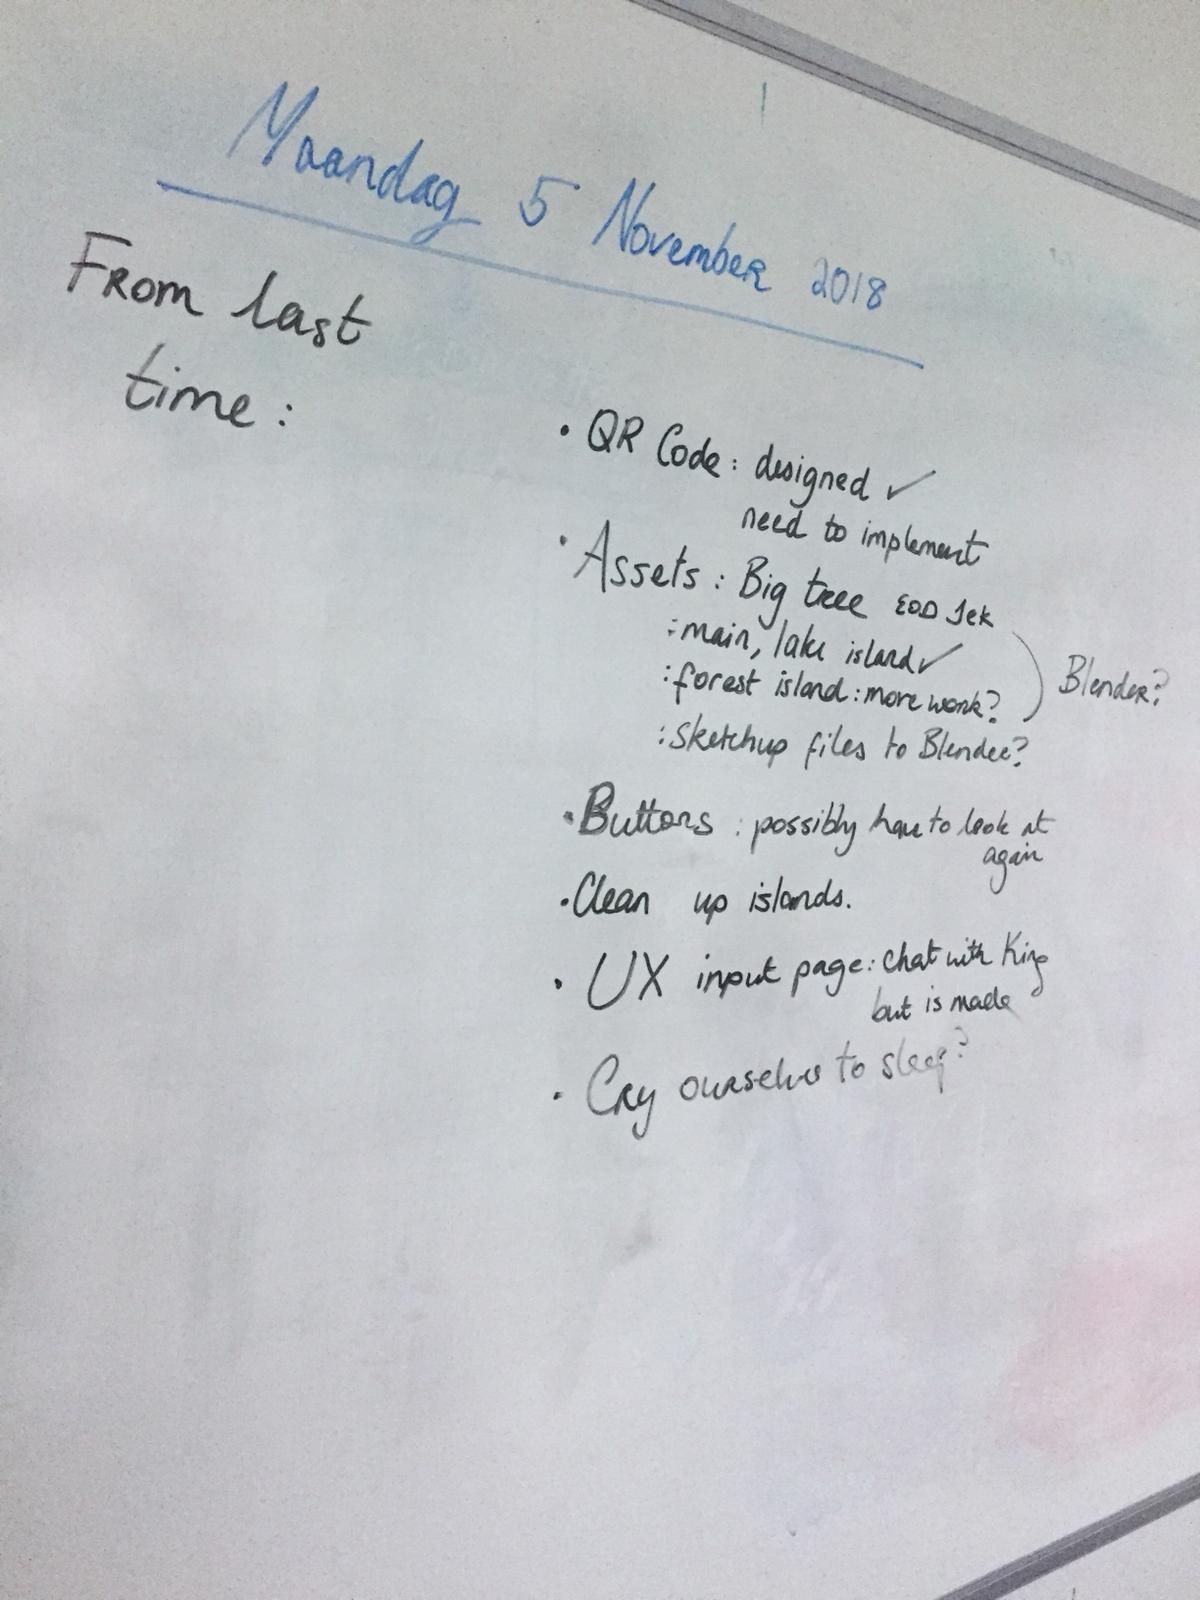 Maandag 5 November 2018
From last
time:
• QR Code: designed ✓
need to implement
• Assets: Big tree EOD Jek
: main, lake island ✓
: forest island: more work?
Blender?
: Sketchup files to Blender?
• Buttons: possibly have to look at
again
• Clean up islands.
• UX input page: chat with King
but is made
• Cry ourselves to sleep?